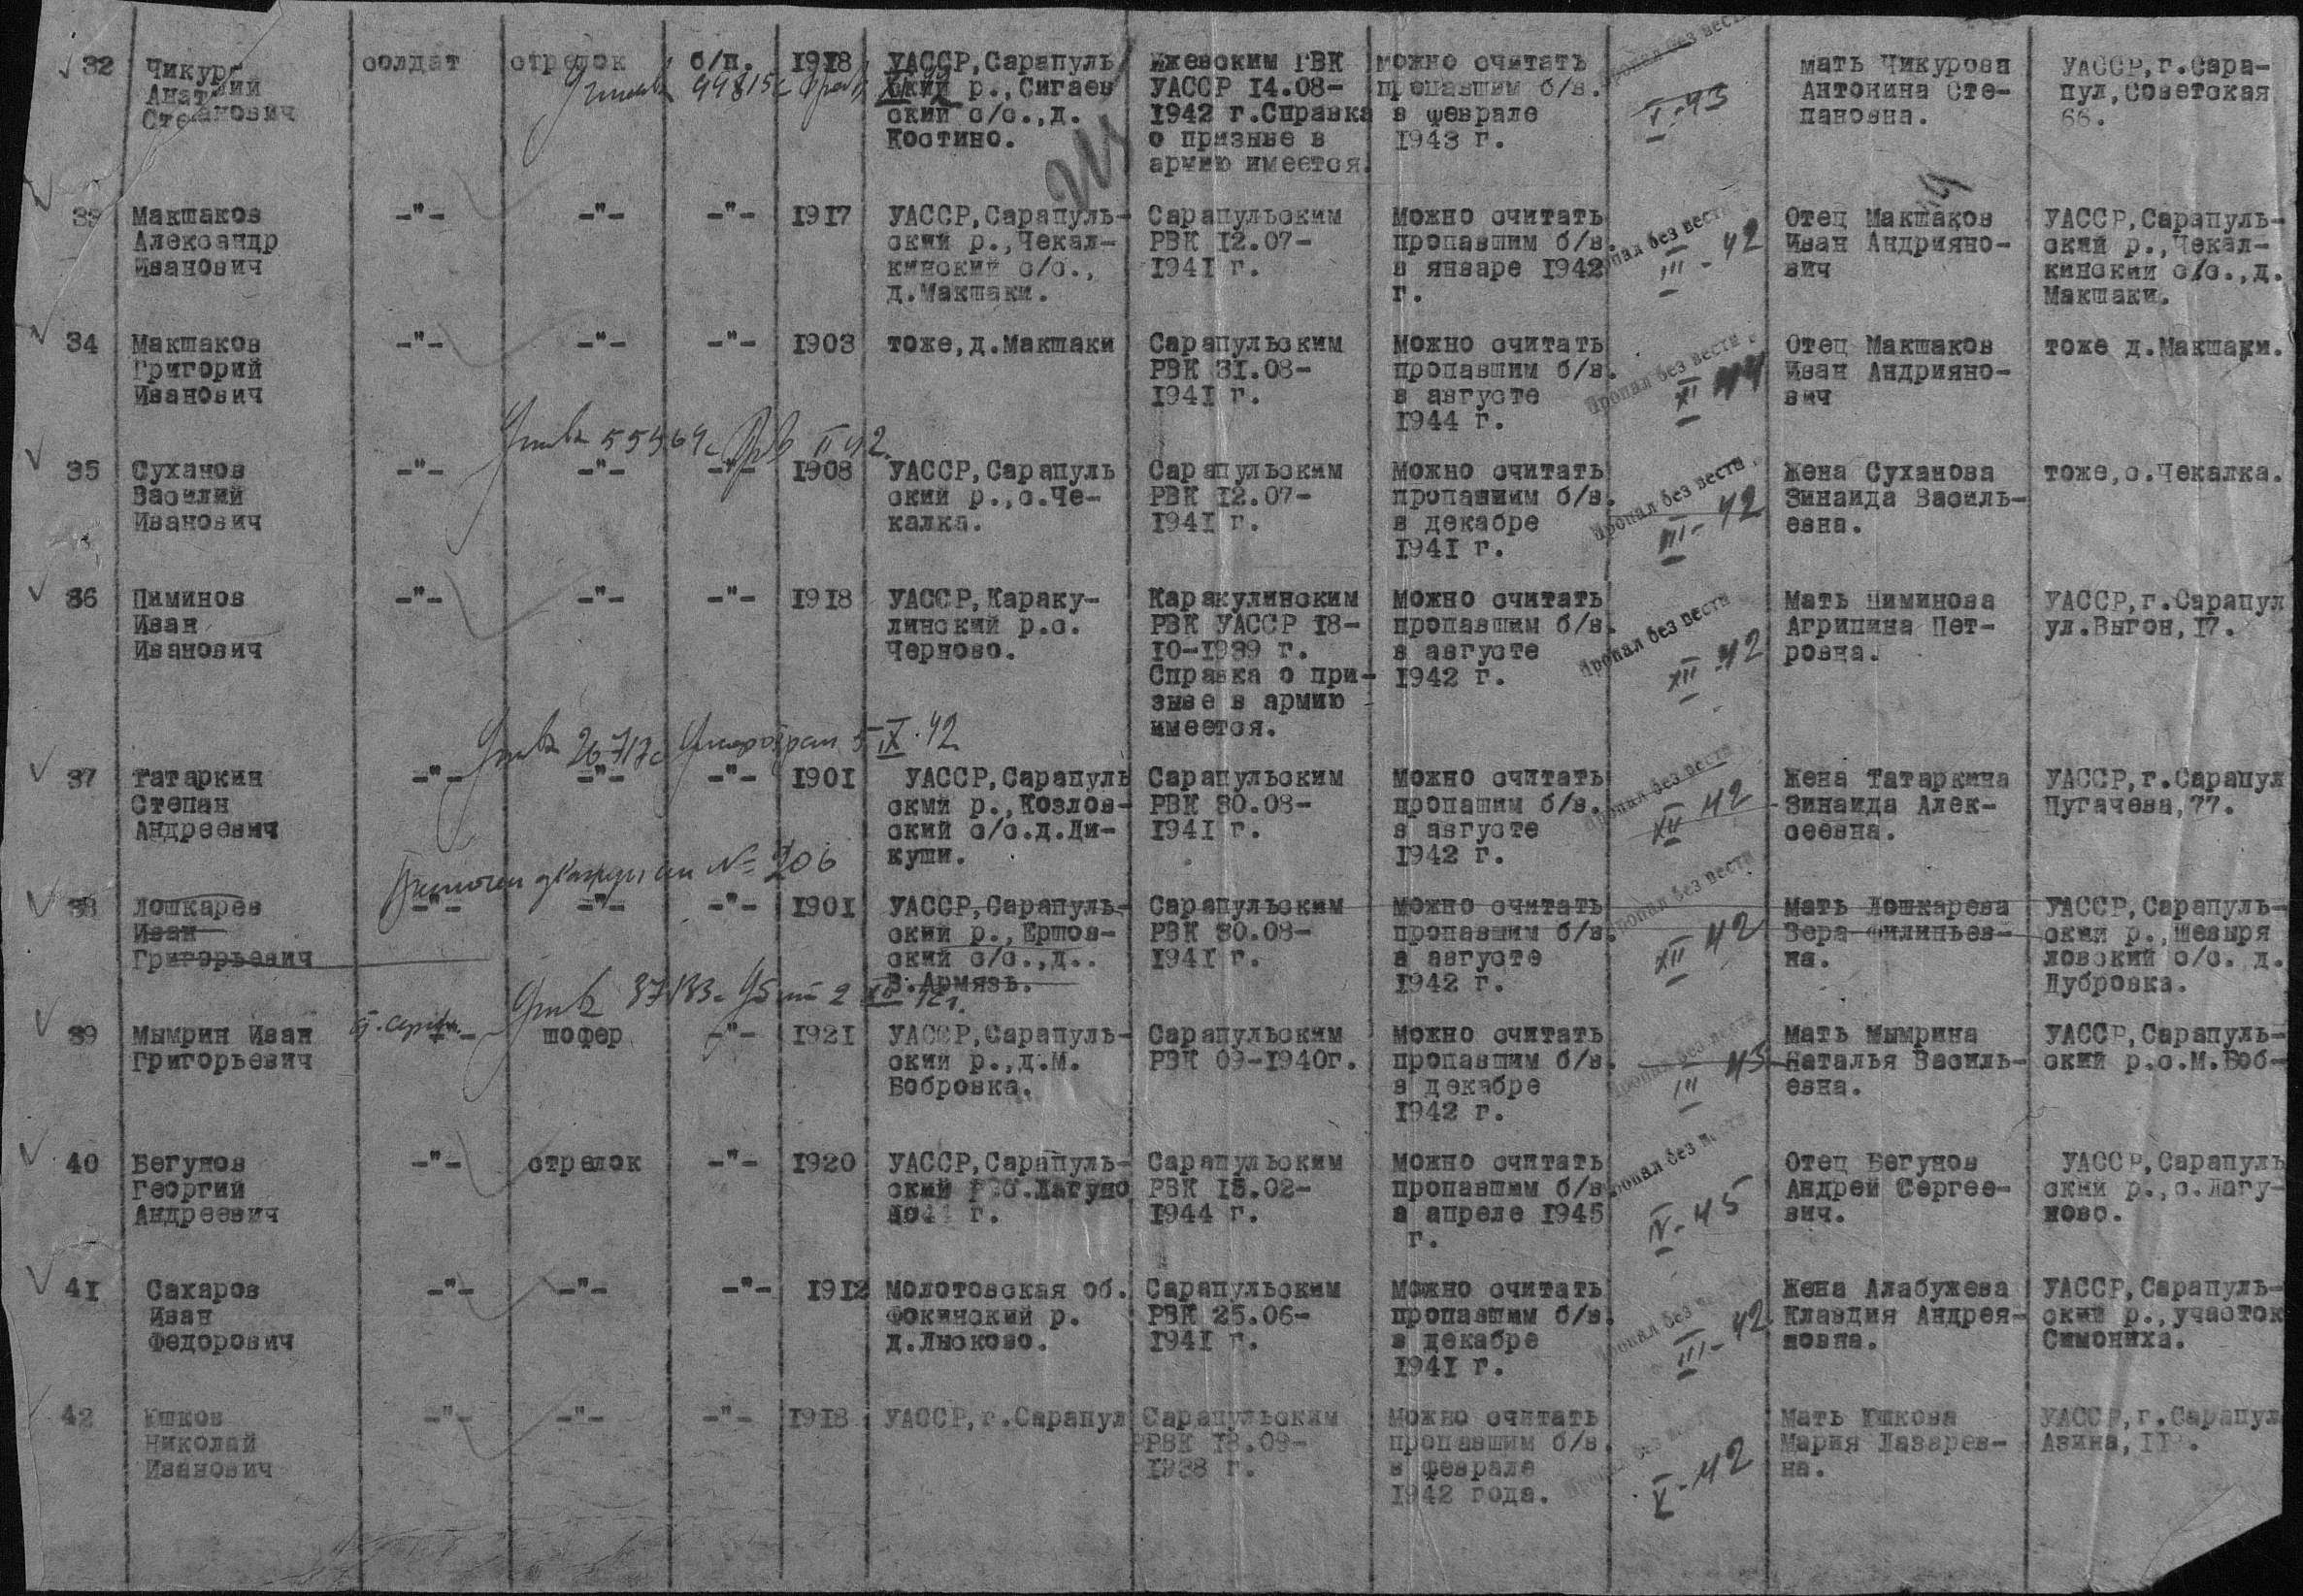 32
Чикур
Анат ий
Степанович
солдат
стрелок
б/п.
1918
УАССР, Сарапуль
ский р., Сигаев
ский с/с., д.
Костино.
Ижевским ГВК
УАССР 14.08-
1942 г. Справка
о призыве в
армию имеется.
можно считать
пропавшим б/в.
в феврале
1943 г.
Пропал без вести
V-43
мать Чикурова
Антонина Сте-
пановна.
УАССР, г. Сара-
пул, Советская
66.
33
Макшаков
Александр
Иванович
-"-
-"-
-"-
1917
УАССР, Сарапуль-
ский р., Чекал-
кинский с/с.,
д. Макшаки.
Сарапульским
РВК 12.07-
1941 г.
Можно считать
пропавшим б/в.
в январе 1942
г.
Пропал без вести
III-42
Отец Макшаков
Иван Андрияно-
вич
УАССР, Сарапуль-
ский р., Чекал-
кинский с/с., д.
Макшаки.
34
Макшаков
Григорий
Иванович
-"-
-"-
-"-
1903
тоже, д. Макшаки
Сарапульским
РВК 31.08-
1941 г.
Можно считать
пропавшим б/в.
в августе
1944 г.
Пропал без вести
XI 44
Отец Макшаков
Иван Андрияно-
вич
тоже д. Макшаки.
55964с II 42.
35
Суханов
Василий
Иванович
-"-
-"-
-"-
1908
УАССР, Сарапуль
ский р., с. Че-
калка.
Сарапульским
РВК 12.07-
1941 г.
Можно считать
пропавшим б/в.
в декабре
1941 г.
Пропал без вести
III-42
Жена Суханова
Зинаида Василь-
евна.
тоже, с. Чекалка.
36
Пиминов
Иван
Иванович
-"-
-"-
-"-
1918
УАССР, Караку-
линский р. с.
Черново.
Каракулинским
РВК УАССР 18-
10-1939 г.
Справка о при-
зыве в армию
имеется.
Можно считать
пропавшим б/в.
в августе
1942 г.
Пропал без вести
XII 42
Мать Пиминова
Агрипина Пет-
ровна.
УАССР, г. Сарапул
ул. Выгон, 17.
5 IX.42
37
Татаркин
Степан
Андреевич
-"-
-"-
-"-
1901
УАССР, Сарапуль
ский р., Козлов-
ский с/с. д. Ди-
куши.
Сарапульским
РВК 30.08-
1941 г.
Можно считать
пропашим б/в.
в августе
1942 г.
Пропал без вести
XII 42
Жена Татаркина
Зинаида Алек-
сеевна.
УАССР, г. Сарапул
Пугачева, 77.
№ 206
38
Лошкарев
Иван
Григорьевич
-"-
-"-
-"-
1901
УАССР, Сарапуль-
ский р., Ершов-
ский с/с., д..
В. Армязь.
Сарапульским
РВК 30.08-
1941 г.
Можно считать
пропавшим б/в.
в августе
1942 г.
Пропал без вести
XII 42
Мать Лошкарева
Вера Филипьев-
на.
УАССР, Сарапуль-
ский р., Шевыря
ловский с/с. д.
Дубровка.
39
Мымрин Иван
Григорьевич
-"-
шофер
-"-
1921
УАССР, Сарапуль-
ский р., д. М.
Бобровка.
Сарапульским
РВК 09-1940г.
Можно считать
пропавшим б/в.
в декабре
1942 г.
Пропал без вести
III 43
Мать Мымрина
Наталья Василь-
евна.
УАССР, Сарапуль-
ский р. с. М. Боб-
40
Бегунов
Георгий
Андреевич
-"-
стрелок
-"-
1920
УАССР, Сарапуль-
ский р. с. Лагуно
Сарапульским
РВК 18.02-
1944 г.
Можно считать
пропавшим б/в
в апреле 1945
г.
Пропал без вести
IV-45
Отец Бегунов
Андрей Сергее-
вич.
УАССР, Сарапуль
ский р., с. Лагу-
ново.
41
Сахаров
Иван
Федорович
-"-
-"-
-"-
1912
Молотовская об.
Фокинский р.
д. Лысково.
Сарапульским
РВК 25.06-
1941 г.
Можно считать
пропавшим б/в.
в декабре
1941 г.
Пропал без вести
III-42
Жена Алабужева
Клавдия Андрея-
новна.
УАССР, Сарапуль-
ский р., участок
Симониха.
42
Юшков
Николай
Иванович
-"-
-"-
-"-
1918
УАССР, г. Сарапул
Сарапульским
РВК 18.09-
1938 г.
Можно считать
пропавшим б/в.
в феврале
1942 года.
Пропал без вести
V-42
Мать Юшкова
Мария Лазарев-
на.
УАССР, г. Сарапул
Азина,